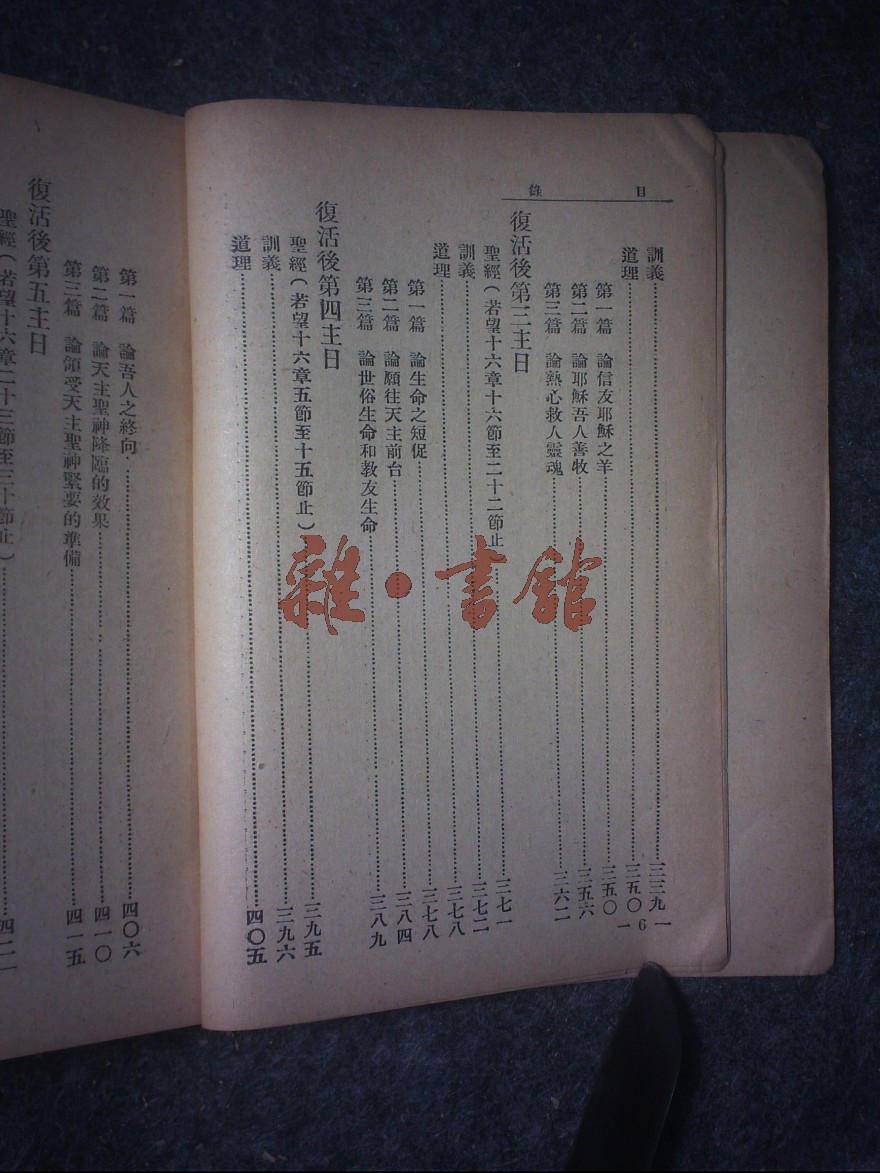 目錄
訓義……三三九
道理……三五〇
第一篇 論信友耶穌之羊……三五〇
第二篇 論耶穌吾人善牧……三五六
第三篇 論熱心救人靈魂……三六二
復活後第三主日
聖經(若望十六章十六節至二十二節止……三七一
訓義……三七二
道理……三七八
第一篇 論生命之短促……三七八
第二篇 論願往天主前台……三八四
第三篇 論世俗生命和教友生命……三八九
復活後第四主日
聖經(若望十六章五節至十五節止)……三九五
訓義……三九六
道理……四〇五
一6一
第一篇 論吾人之終向……四〇六
第二篇 論天主聖神降臨的效果……四一〇
第三篇 論領受天主聖神緊要的準備……四一五
復活後第五主日
聖經(若望十六章二十三節至三十節止)
雜·書館